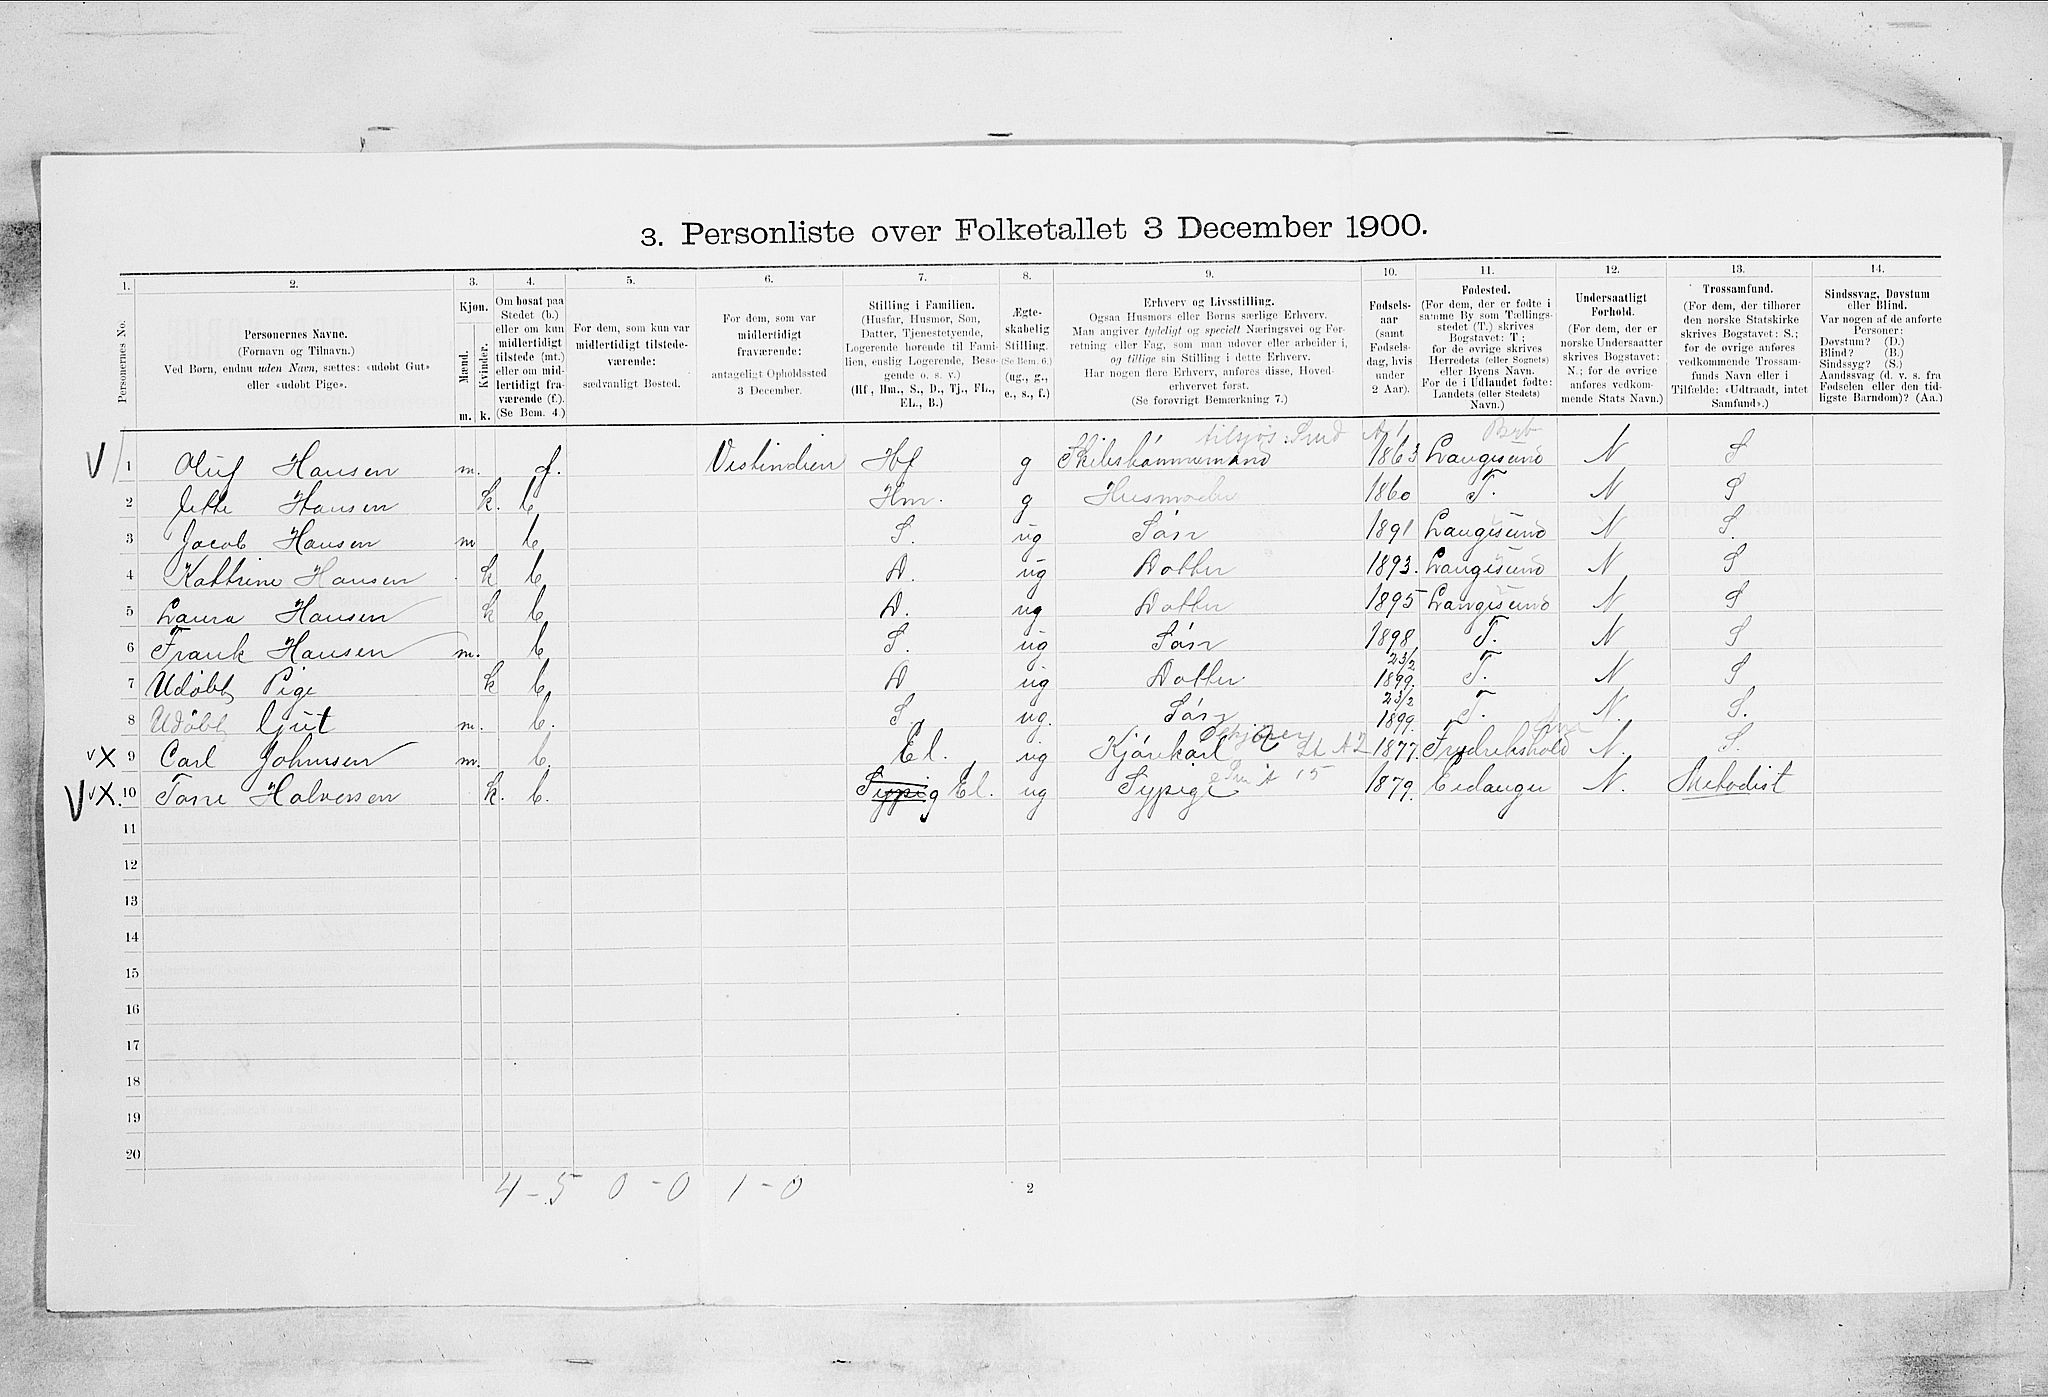 3. Personliste over Folketallet 3 December 1900.
1. 2. 3. 4. 5. 6. 7. 8. 9. 10. 11. 12. 13. 14.
Personernes No.
Personernes Navne.
(Fornavn og Tilnavn.)
Ved Børn, endnu uden Navn, sættes: «udøbt Gut»
eller «udøbt Pige».
Kjøn.
Mænd.
Kvinder.
m. k.
Om bosat paa
Stedet (b.)
eller om kun
midlertidigt
tilstede (mt.)
eller om mid-
lertidigt fra-
værende (f.).
(Se Bem. 4.)
For dem, som kun var
midlertidigt tilstede-
værende:
sædvanligt Bosted.
For dem, som var
midlertidigt
fraværende:
antageligt Opholdssted
3 December.
Stilling i Familien.
(Husfar, Husmor, Søn,
Datter, Tjenestetyende,
Logerende hørende til Fami-
lien, enslig Logerende, Besø-
gende o. s. v.)
(Hf., Hm., S., D., Tj., FL.,
EL., B.)
Ægte-
skabelig
Stilling.
(Se Bem. 6.)
(ug., g.,
e., s., f.)
Erhverv og Livsstilling.
Ogsaa Husmors eller Børns særlige Erhverv.
Man angiver tydeligt og specielt Næringsvei og For-
retning eller Fag, som man udøver eller arbeider i,
og tillige sin Stilling i dette Erhverv.
Har nogen flere Erhverv, anføres disse, Hoved-
erhvervet først.
(Se forøvrigt Bemærkning 7.)
Fødsels-
aar
(samt
Fødsels-
dag, hvis
under
2 Aar).
Fødested.
(For dem, der er fødte i
samme By som Tællings-
stedet (T.) skrives
Bogstavet: T;
for de øvrige skrives
Herredets (eller Sognets)
eller Byens Navn.
For de i Udlandet fødte:
Landets (eller Stedets)
Navn.)
Undersaatligt
Forhold.
(For dem, der er
norske Undersaatter
skrives Bogstavet:
N.; for de øvrige
anføres vedkom-
mende Stats Navn.)
Trossamfund.
(For dem, der tilhører
den norske Statskirke
skrives Bogstavet: S.;
for de øvrige anføres
vedkommende Trossam-
funds Navn eller i
Tilfælde: «Udtraadt, intet
Samfund».)
Sindssvag, Døvstum
eller Blind.
Var nogen af de anførte
Personer:
Døvstum? (D.)
Blind? (B.)
Sindssyg? (S.)
Aandssvag (d. v. s. fra
Fødselen eller den tid-
ligste Barndom)? (Aa.)
V 1 Oluf Hansen m. f. Vestindien Hf g Skibstømmermand 1863 Langesund N S
2 Jette Hansen k. b Hm. g Husmoder 1860 T. N S
3 Jacob Hansen m b S. ug Søn 1891 Langesund N S.
4 Kattrine Hansen k b D. ug Datter 1893. Langesund N S
5 Laura Hansen k b D. ug Datter 1895 Langesund N S
6 Frank Hansen m. b S. ug Søn 1898 T. N S
7 Udøbt Pige k b D ug Datter 23/2 1899. T. N S
8 Udøbt Gut m. b. S. ug. Søn 23/2 1899. T. N. S.
vX 9 Carl Johnsen m. b. El. ug Kjørekarl 1877. Fredrikshald N. S.
V vX. 10 Tone Halvorsen k. b. Sypig El. ug Sypige 1879. Eidanger N. Methodist
11
12
13
14
15
16
17
18
19
20
4 - 5 0 - 0 1 - 0
2